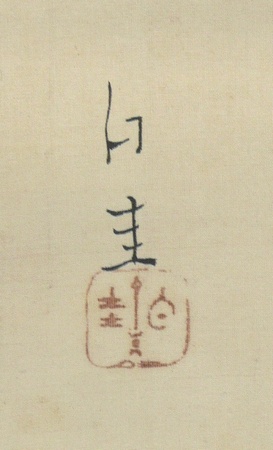 白圭
白圭